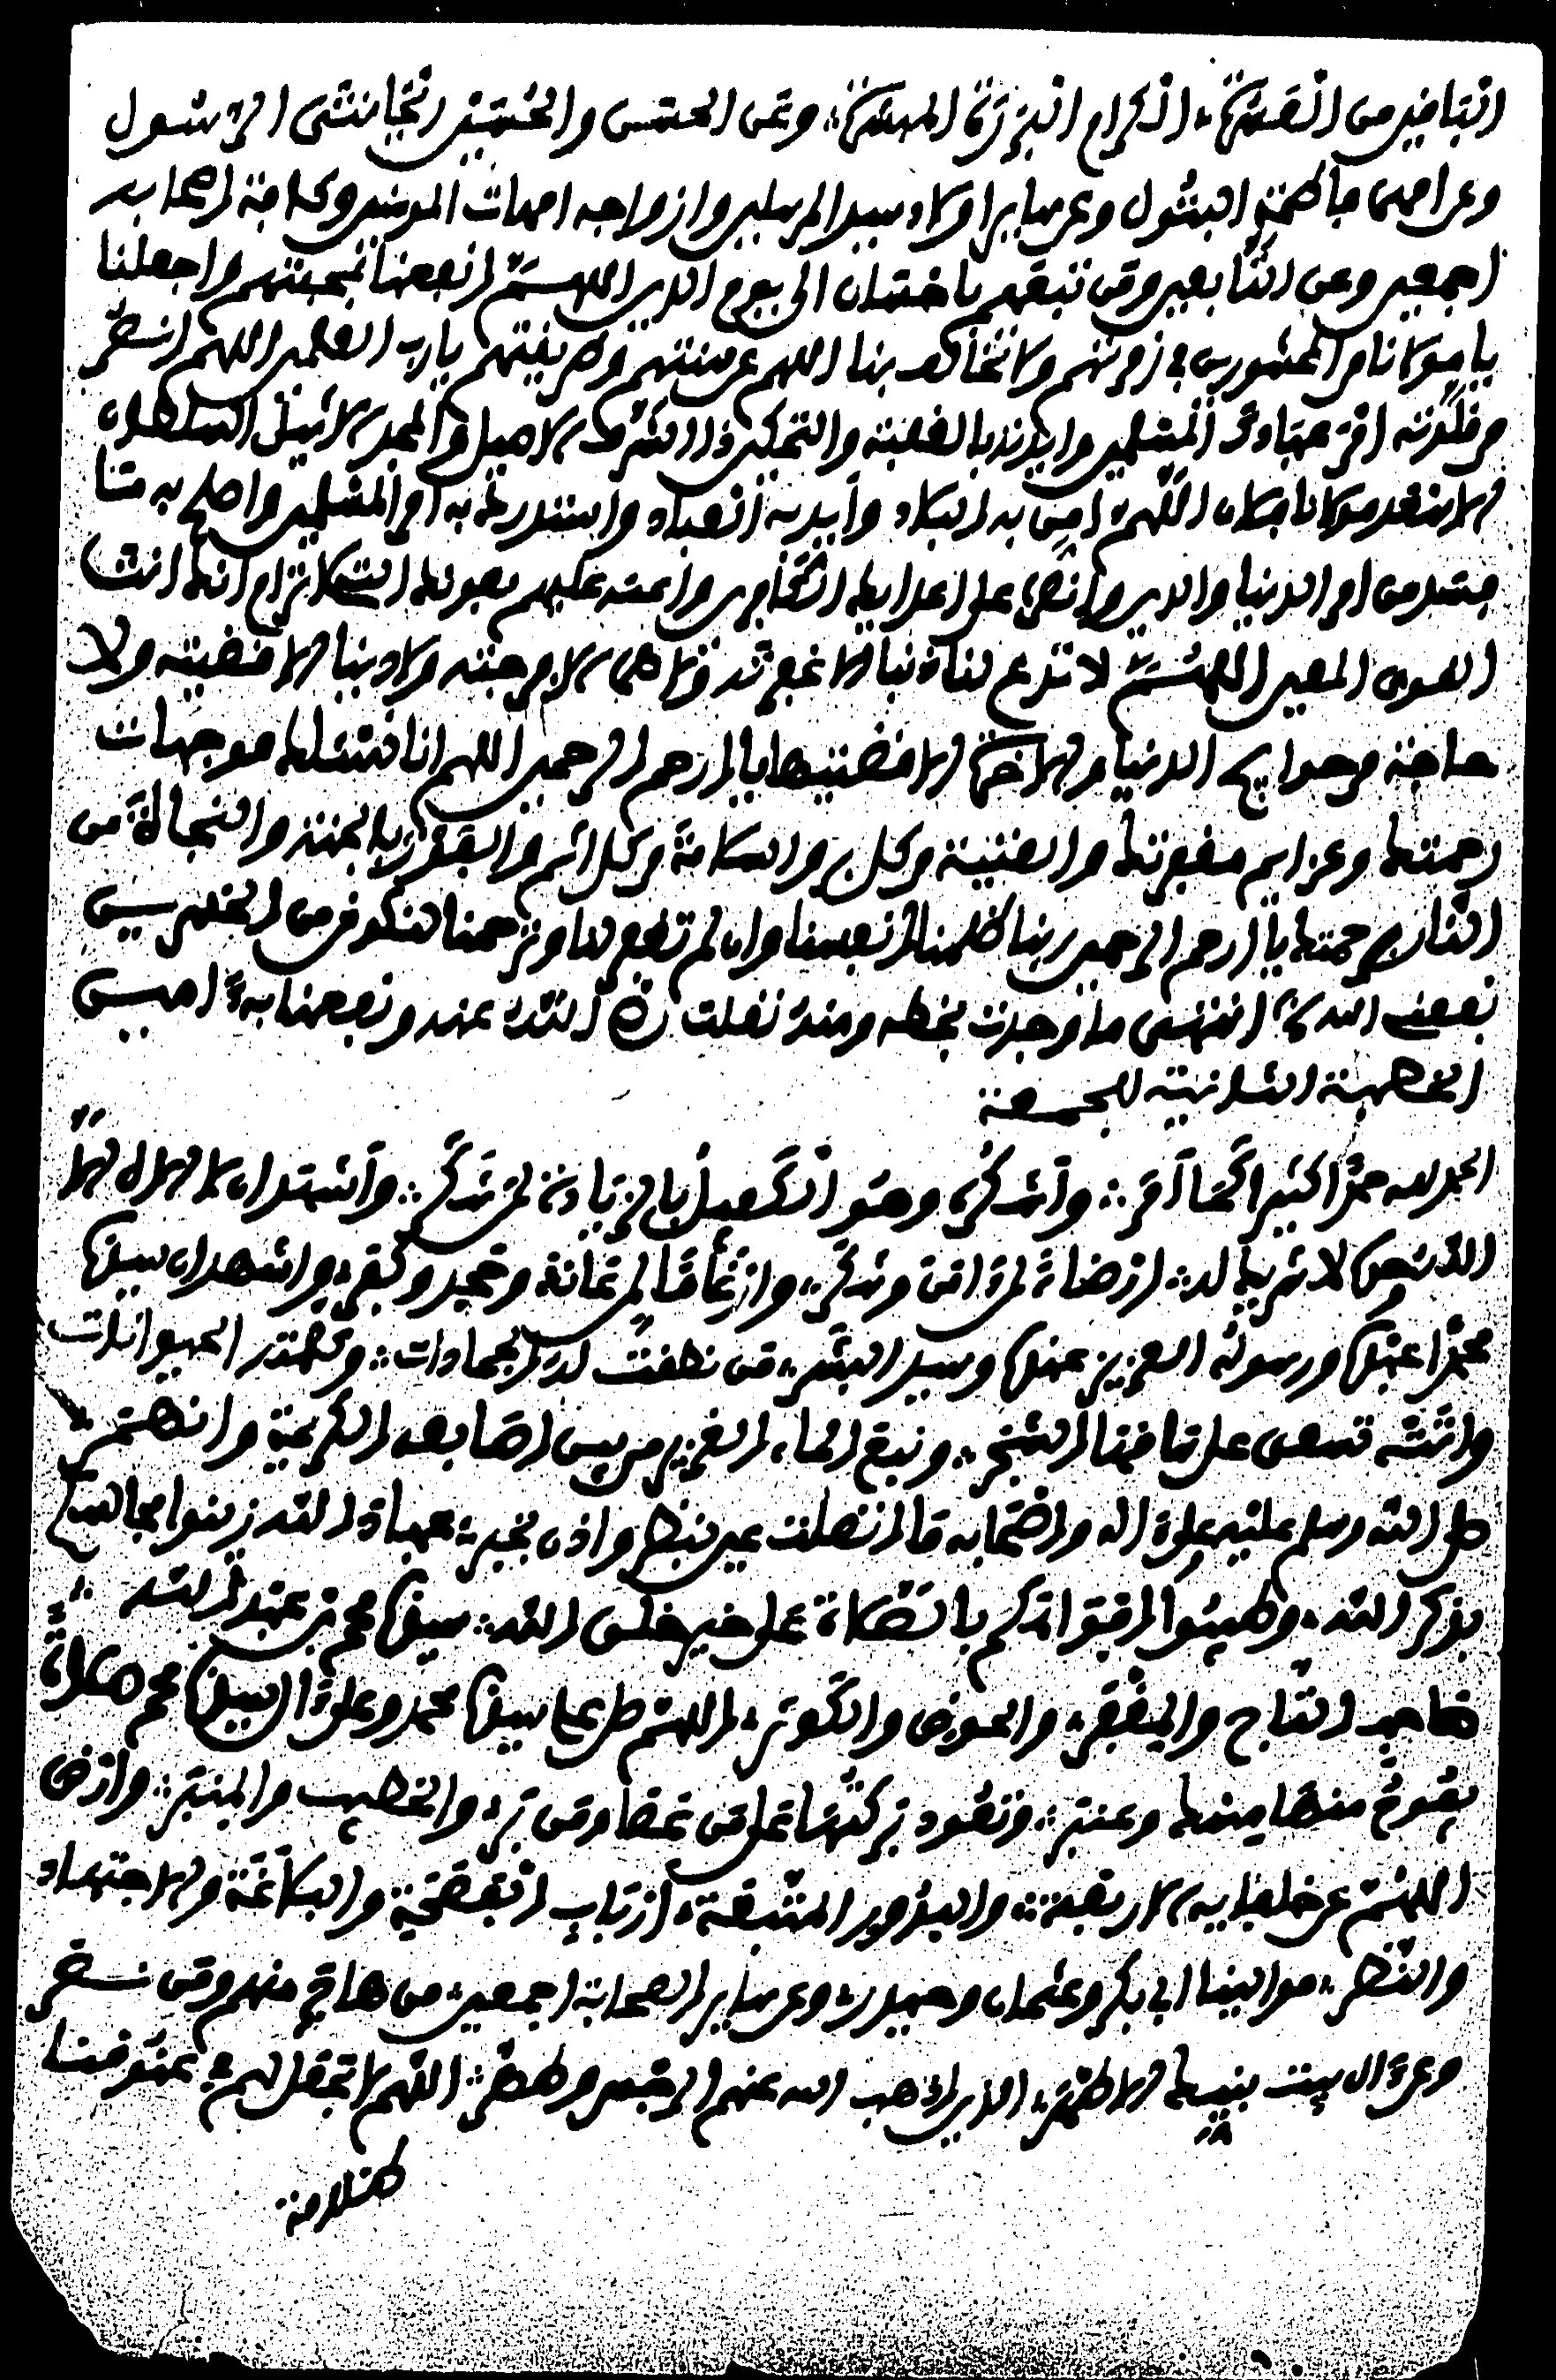 الباقين من العشرة، الكرام البررة المهرة، وعن الحسن والحسين ريحانتي الرسول
وعن امهما فاطمة البتول وعن ساير اولاد سيد المرسلين وازواجه امهات المومنين وكافة اصحابه
اجمعين وعن التابعين ومن تبعهم باحسان الى يوم الدين اللهم انفعنا بمحبتهم واجعلنا
يا مولانا من المحشورين في زمرتهم ولا تخالف بنا اللهم عن سنتهم وطريقتهم يا رب العلمين اللهم انصر
من قلدته امر عبادك المسلمين وايدته بالغلبة والتمكين ذا الشرف الاصيل والمجد الاثيل السلطان
الاسعد مولانا اللهم امن به البلاد وأيد به العباد واسعد به امر المسلمين واصلح به منا
فسد من امر الدنيا والدين وانصره على اعدايك الكافرين واعنه عليهم بعونك انك انت
القوي المعين اللهم لا تدع لنا ذنبا الا غفرته ولا هما الا فرجته ولا دينا الا قضيته ولا
حاجة من حوايج الدنيا والاخرة الا قضيتها يا ارحم الرحمين اللهم انا نسئلك موجبات
رحمتك وعزايم مغفرتك والغنيمة من كل بر والسلامة من كل اثم والفوز بالجنة والنجاة من
النار برحمتك يا ارحم الرحمين ربنا ظلمنا انفسنا وان لم تغفر لنا وترحمنا لنكونن من الخسرين
نفعني الله انتهى ما وجدت بخطه ومنه نقلت رضي الله عنه ونفعنا به امين
الخطبة الثانية للجمعة
الحمد لله حمدا كثيرا كما أمر وأشكره وهو الكفيل بالزيادة لمن شكر وأشهد ان لا اله الا
الله وحده لا شريك له ارضاء لمن امن وشكر، وارغاما لمن عانده وجحد وكفر، واشهد ان سيدنا
محمدا عبده ورسوله العزيز عنده وسيد البشر، من نطقت له الجمادات، وكلمته الحيوانات
واتته تسعى على ساقها الشجر، ونبع الماء الغزير من بين اصابعه الكريمة وانهمر
صلى الله وسلم عليه وعلى اله واصحابه ما اتصلت عين بنظر واذن بخبر، عباد الله زينوا مجالسكم
بذكر الله، وطيبوا افواهكم بالصلاة على خير خلق الله، سيدنا محمد بن عبد الله
صاحب التاج والمغفر، والحوض والكوثر، اللهم صل على سيدنا محمد وعلى ال سيدنا محمد صلاة
يفوح منها مسك وعنبر، وتعود بركتها على من عصا ومن بر، والخطيب والمنبر، وارض
اللهم عن خلفايه الاربعة، والبدور المتبعة، ارباب الفصاحة والبلاغة والاجتهاد
والنظر، موالينا ابي بكر وعثمان وحيدر، وعن ساير الصحابة اجمعين، من هاجر منهم ومن نصر
وعن ال بيت نبيك الاطهر، الذين اذهب الله عنهم الرجس وطهر، اللهم لا تجعل لهم في عنوقنا
ظلامة